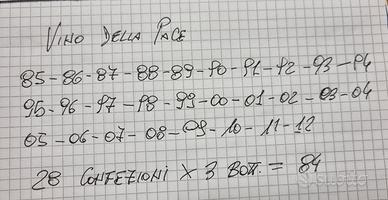 VINO DELLA PACE
85-86-87-88-89-90-91-92-93-94
95-96-97-98-99-00-01-02-03-04
05-06-07-08-09-10-11-12
28 CONFEZIONI x 3 BOTT. = 84
subito